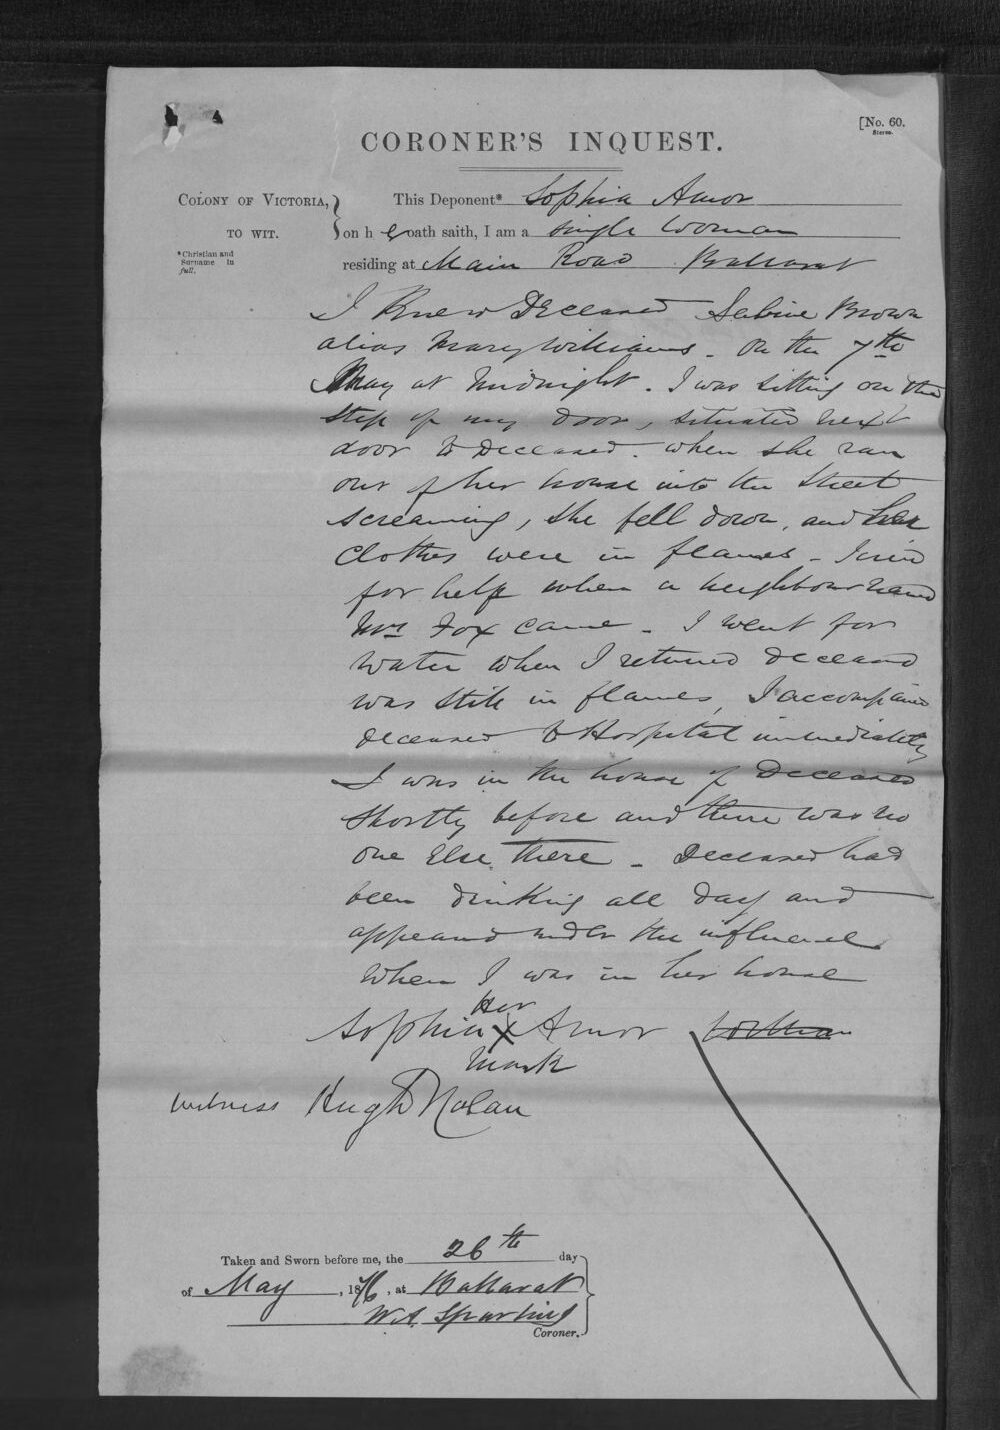 [No. 60.
Stereo.
CORONER'S INQUEST.
COLONY OF VICTORIA, This Deponent* Sophia Amor
TO WIT. on h er oath saith, I am a single Woman
*Christian and Surname in full.
residing at Main Road Ballarat
I Knew Deceased Sabine Brown
alias Mary Williams. On the 7th
May at Midnight. I was sitting on the
step of my door, situated next
door to Deceased. when she ran
out of her house into the street
screaming, she fell down, and her
clothes were in flames - I cried
for help when a neighbour named
Mrs Fox came - I went for
water when I returned deceased
was still in flames, I accompanied
deceased to Hospital immediately
I was in the house of Deceased
shortly before and there was no
one Else there - Deceased had
been drinking all day and
appeared under the influence
when I was in her house
Her
Sophia X Amor
Mark
witness Hugh Nolan
Taken and Sworn before me, the 26th day
of May, 1876, at Ballarat
W.A. Sparling
Coroner.